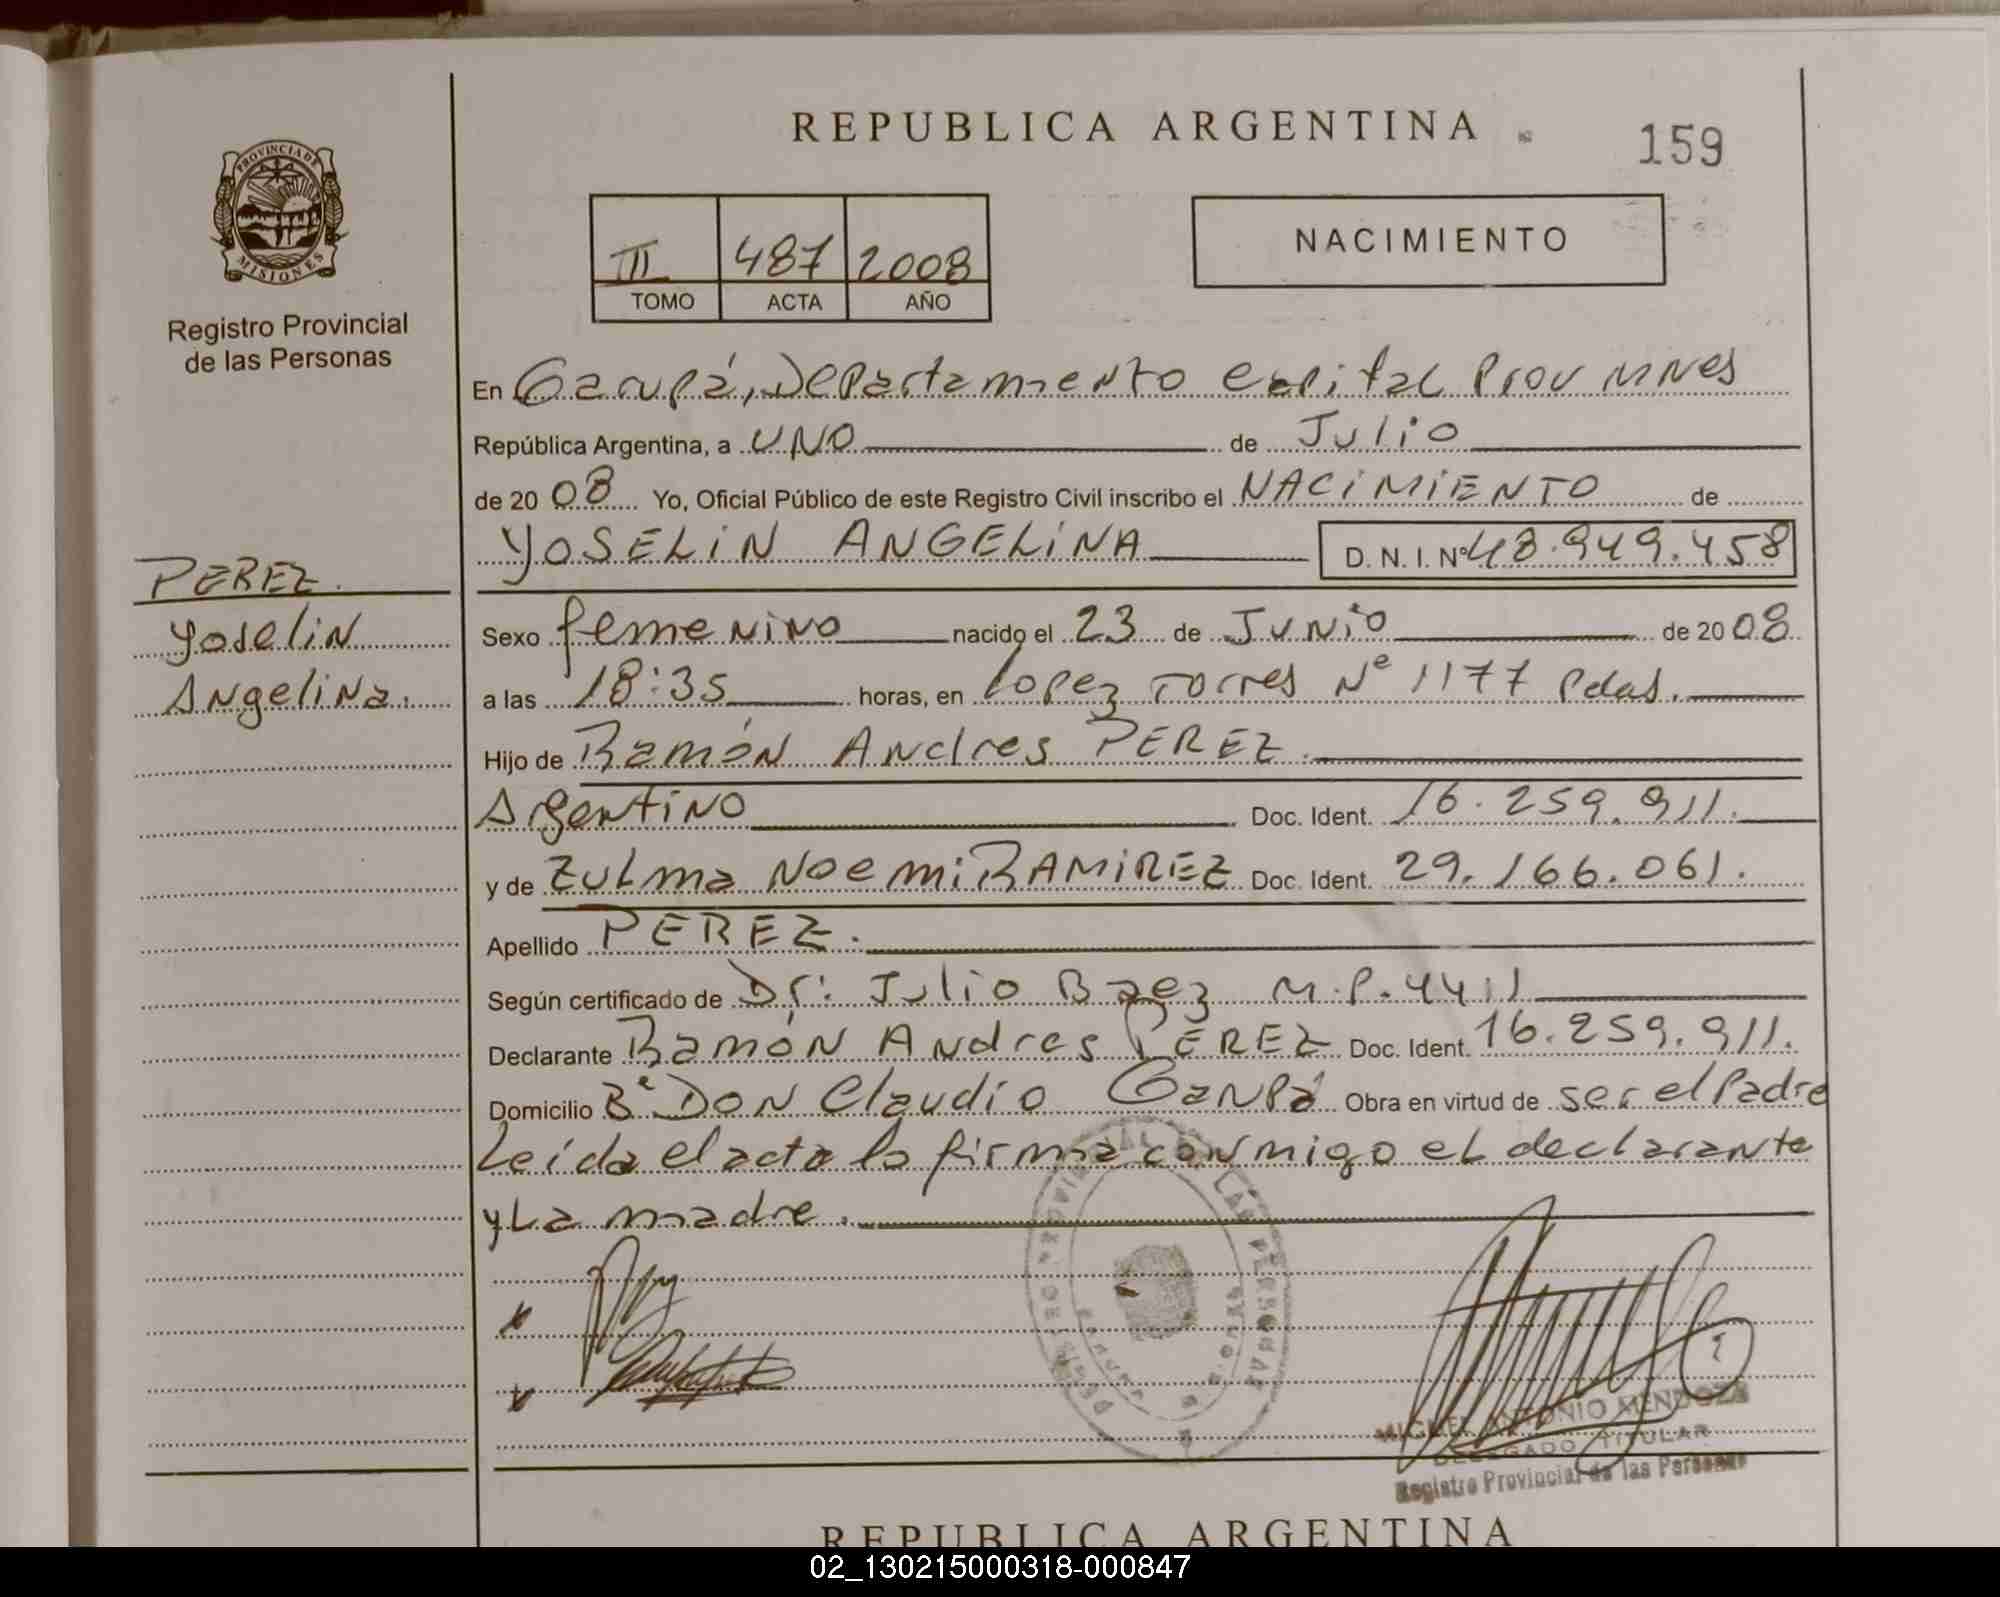 REPUBLICA ARGENTINA
159
PROVINCIA DE
MISIONES
Registro Provincial
de las Personas
III 487 2008
TOMO ACTA AÑO
NACIMIENTO
En Garupá, Departamento Capital Prov Mnes
República Argentina, a UNO de Julio
de 2008 Yo, Oficial Público de este Registro Civil inscribo el NACIMIENTO de
YOSELIN ANGELINA D. N. I. Nº 48.949.458
PEREZ.
Yoselin
Angelina.
Sexo femenino nacido el 23 de Junio de 2008
a las 18:35 horas, en Lopez Torres Nº 1177 Pdas.
Hijo de Ramón Andres PEREZ.
Argentino Doc. Ident. 16.259.911.
y de Zulma Noemi RAMIREZ Doc. Ident. 29.166.061.
Apellido PEREZ.
Según certificado de Dr. Julio Baez M.P. 4411
Declarante Ramón Andres PEREZ Doc. Ident. 16.259.911.
Domicilio Bº DON Claudio Garupá Obra en virtud de ser el Padre
Leída el acta la firma conmigo el declarante
y La madre.
MIGUEL ANTONIO MENDOZA
DELEGADO TITULAR
Registro Provincial de las Personas
REPUBLICA ARGENTINA
02_130215000318-000847